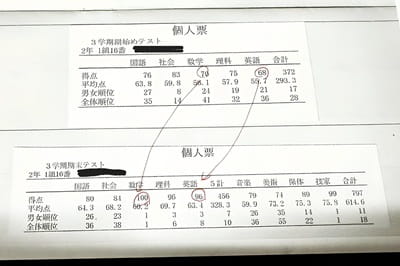 個人票
3学期期始めテスト
2年 1組16番
国語 社会 数学 理科 英語 合計
得点 76 83 70 75 68 372
平均点 63.8 59.8 56.1 57.9 55.7 293.3
男女順位 27 8 24 19 21 17
全体順位 35 14 41 32 36 28
個人票
3学期期末テスト
2年 1組16番
国語 社会 数学 理科 英語 5計 音楽 美術 保体 技家 合計
得点 80 84 100 96 96 456 79 74 89 99 797
平均点 64.3 68.2 69.7 63.4 328.3 59.9 73.2 75.3 75.8 614.6
男女順位 26 23 1 3 3 7 26 35 14 1 11
全体順位 36 38 1 6 8 10 36 55 22 1 18